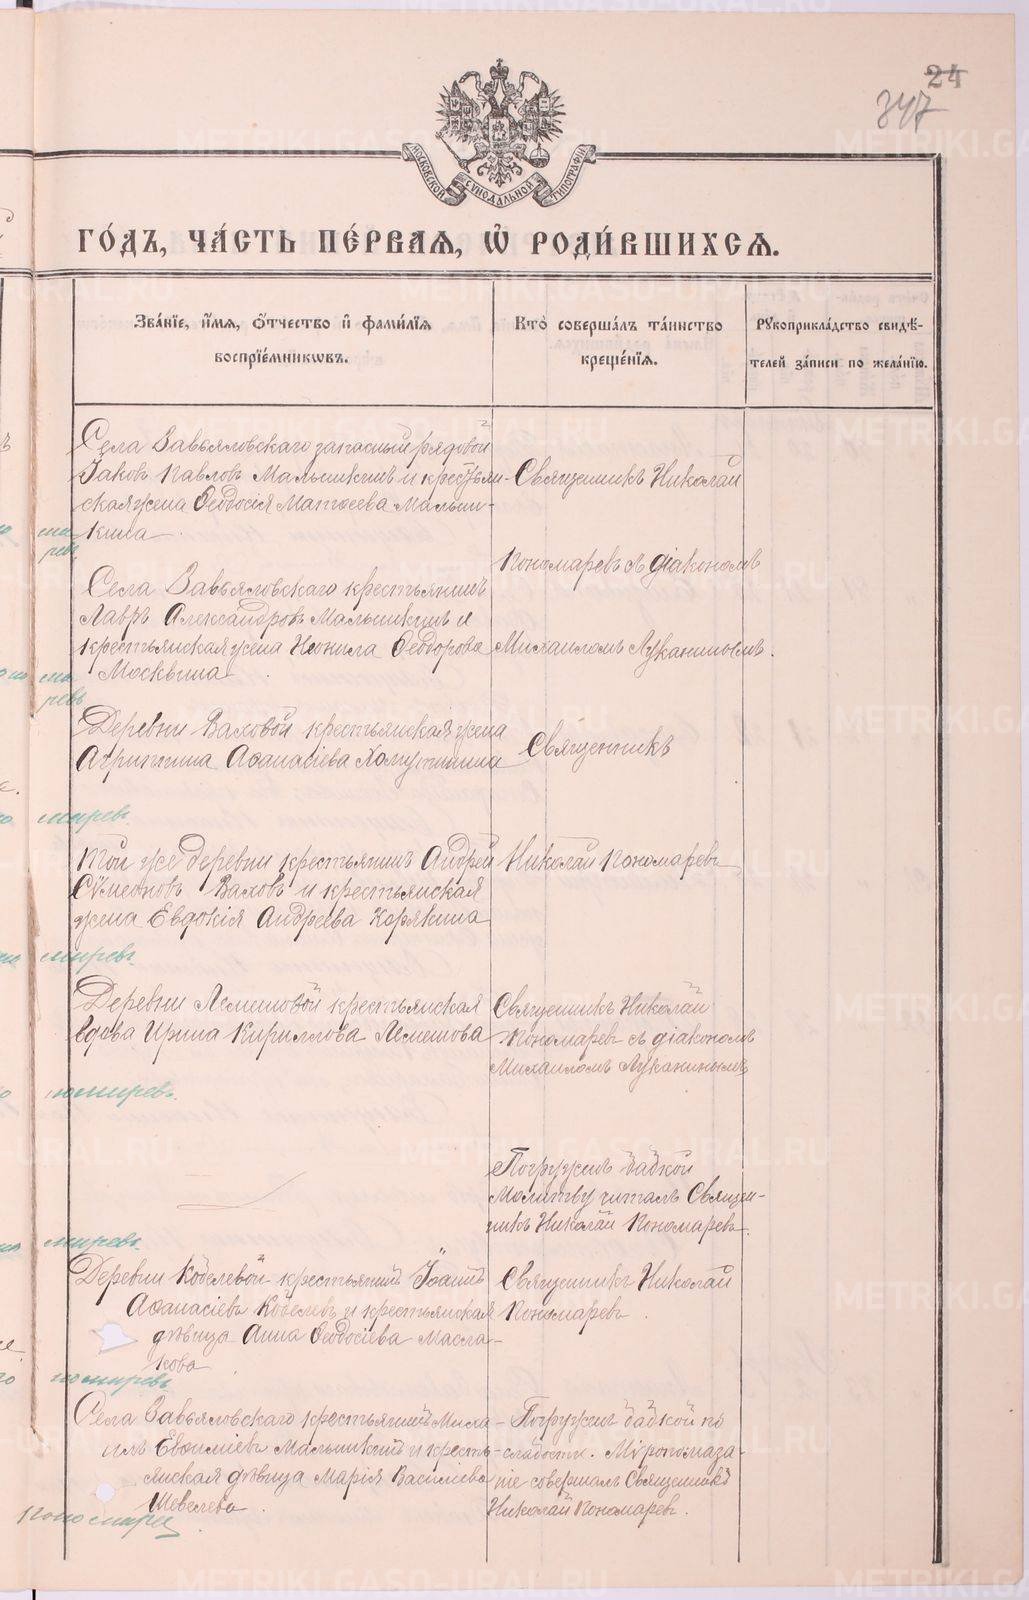 24
347
МОСКОВСКОЙ СѴНОДАЛЬНОЙ ТИПОГРАФІИ
ГО́ДЪ, ЧА́СТЬ ПЕ́РВАЯ, Ѽ РОДИ́ВШИХСЯ.
Зва́нїе, и҆́мя, ѻ҆́тчество и҆ фами́лїя
воспрїе́мникѡвъ.
Кто̀ соверша́лъ та́инство
креще́нїя.
Рꙋкоприкла́дство свидѣ́-
телей за́писи по жела́нїю.
Села Завьяловскаго запасный рядовой
Іаковъ Павловъ Малышкинъ и крестьян-
ская жена Ѳеодосія Матѳеева Малыш-
кина
Села Завьяловскаго крестьянинъ
Лавръ Александровъ Малышкинъ и
крестьянская жена Неонила Ѳеодорова
Москвина
Священникъ Николай
Пономаревъ съ діакономъ
Михаиломъ Луканинымъ.
Деревни Валовой крестьянская жена
Агриппина Аѳанасіева Хомутинина
Священникъ
Той же деревни крестьянинъ Андрей
Сѷмеоновъ Валовъ и крестьянская
жена Евдокія Андреева Корякина
Николай Пономаревъ
Деревни Лемешовой крестьянская
вдова Ирина Кириллова Лемешова
Священникъ Николай
Пономаревъ съ діакономъ
Михаиломъ Луканинымъ
Погружен бабкой
Молитву читалъ Священ-
никъ Николай Пономаревъ.
Деревни Кобелевой крестьянинъ Іоаннъ
Аѳанасіевъ Кобелевъ и крестьянская
дѣвица Анна Ѳеодосіева Масла-
кова
Священникъ Николай
Пономаревъ.
Села Завьяловскаго крестьянинъ Миха-
илъ Евѳиміевъ Малышкинъ и кресть-
янская дѣвица Марія Василіева
Шевелева.
Погружен бабкой по
слабости. Мѵропомаза-
ніе совершалъ Священникъ
Николай Пономаревъ.
Пономарев
METRIKI.GASO-URAL.RU